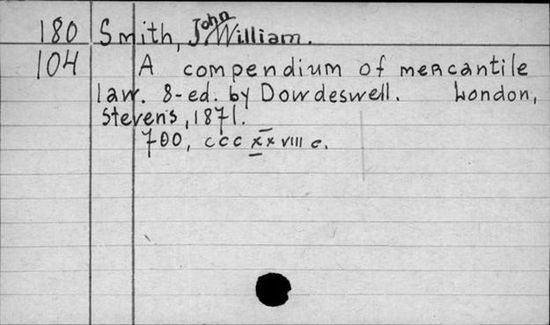 180 Smith, John William.
104 A compendium of mercantile
law. 8-ed. by Dowdeswell. London,
Stevens, 1871.
700, cccxxviii c.